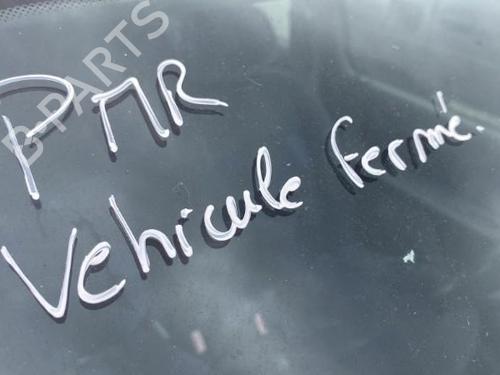 PMR
Vehicule fermé.
B-PARTS